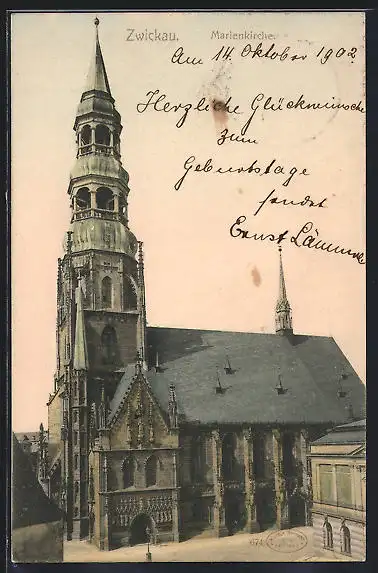 Zwickau. Marienkirche.
Am 14. Oktober 1902
Herzliche Glückwünsche
zum
Geburtstage
sendet
Ernst